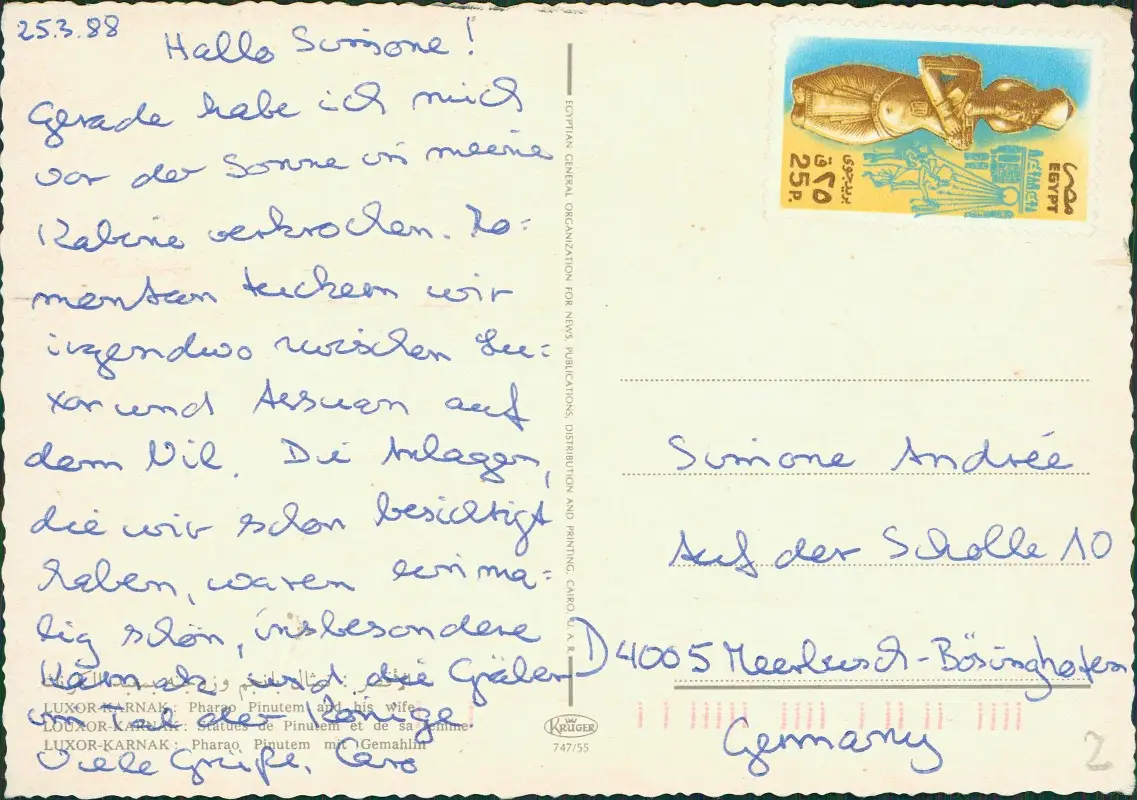 25.3.88
Hallo Simone!
Gerade habe ich mich
vor der Sonne in meine
Kabine verkrochen. Mo=
mentan tuckern wir
irgendwo zwischen Lu=
xor und Assuan auf
dem Nil. Die Anlagen,
die wir schon besichtigt
haben, waren einma=
lig schön, insbesondere
Karnak und die Gräber
im Tal der Könige.
Viele Grüße, Caro
LUXOR-KARNAK: Pharao Pinutem and his wife
LOUXOR-KARNAK: Statues de Pinutem et de sa femme
LUXOR-KARNAK: Pharao Pinutem mit Gemahlin
EGYPTIAN GENERAL ORGANIZATION FOR NEWS, PUBLICATIONS, DISTRIBUTION AND PRINTING, CAIRO, U.A.R.
KRÜGER
747/55
مصر
EGYPT
بريد جوى
٢٥ ق
25 P.
Simone Andrée
Auf der Scholle 10
D 4005 Meerbusch-Bösinghoven
Germany
2